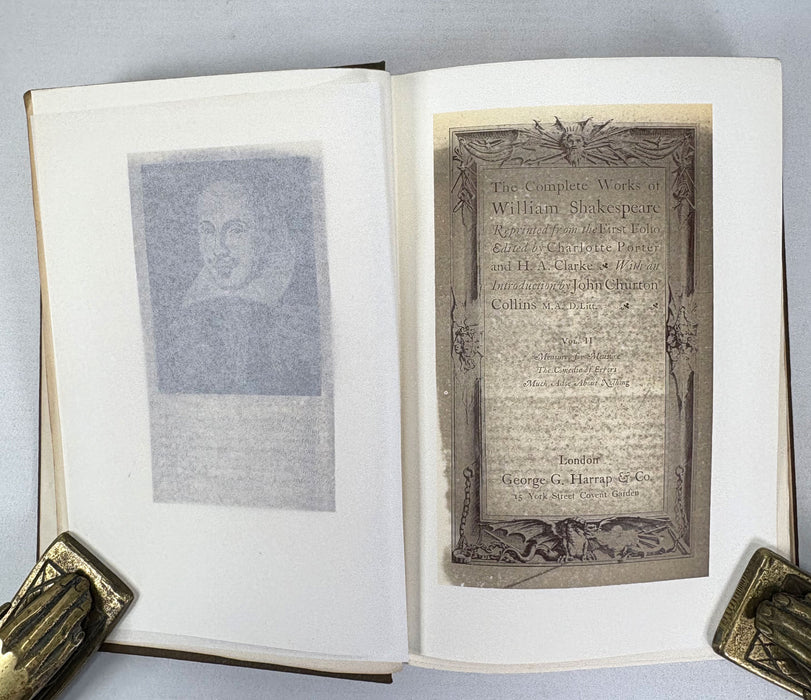 The Complete Works of
William Shakespeare
Reprinted from the First Folio
Edited by Charlotte Porter
and H. A. Clarke With an
Introduction by John Churton
Collins M.A., D. Litt.
Vol. II
Measure for Measure
The Comedie of Errors
Much Adoe About Nothing
London
George G. Harrap & Co.
15 York Street Covent Garden